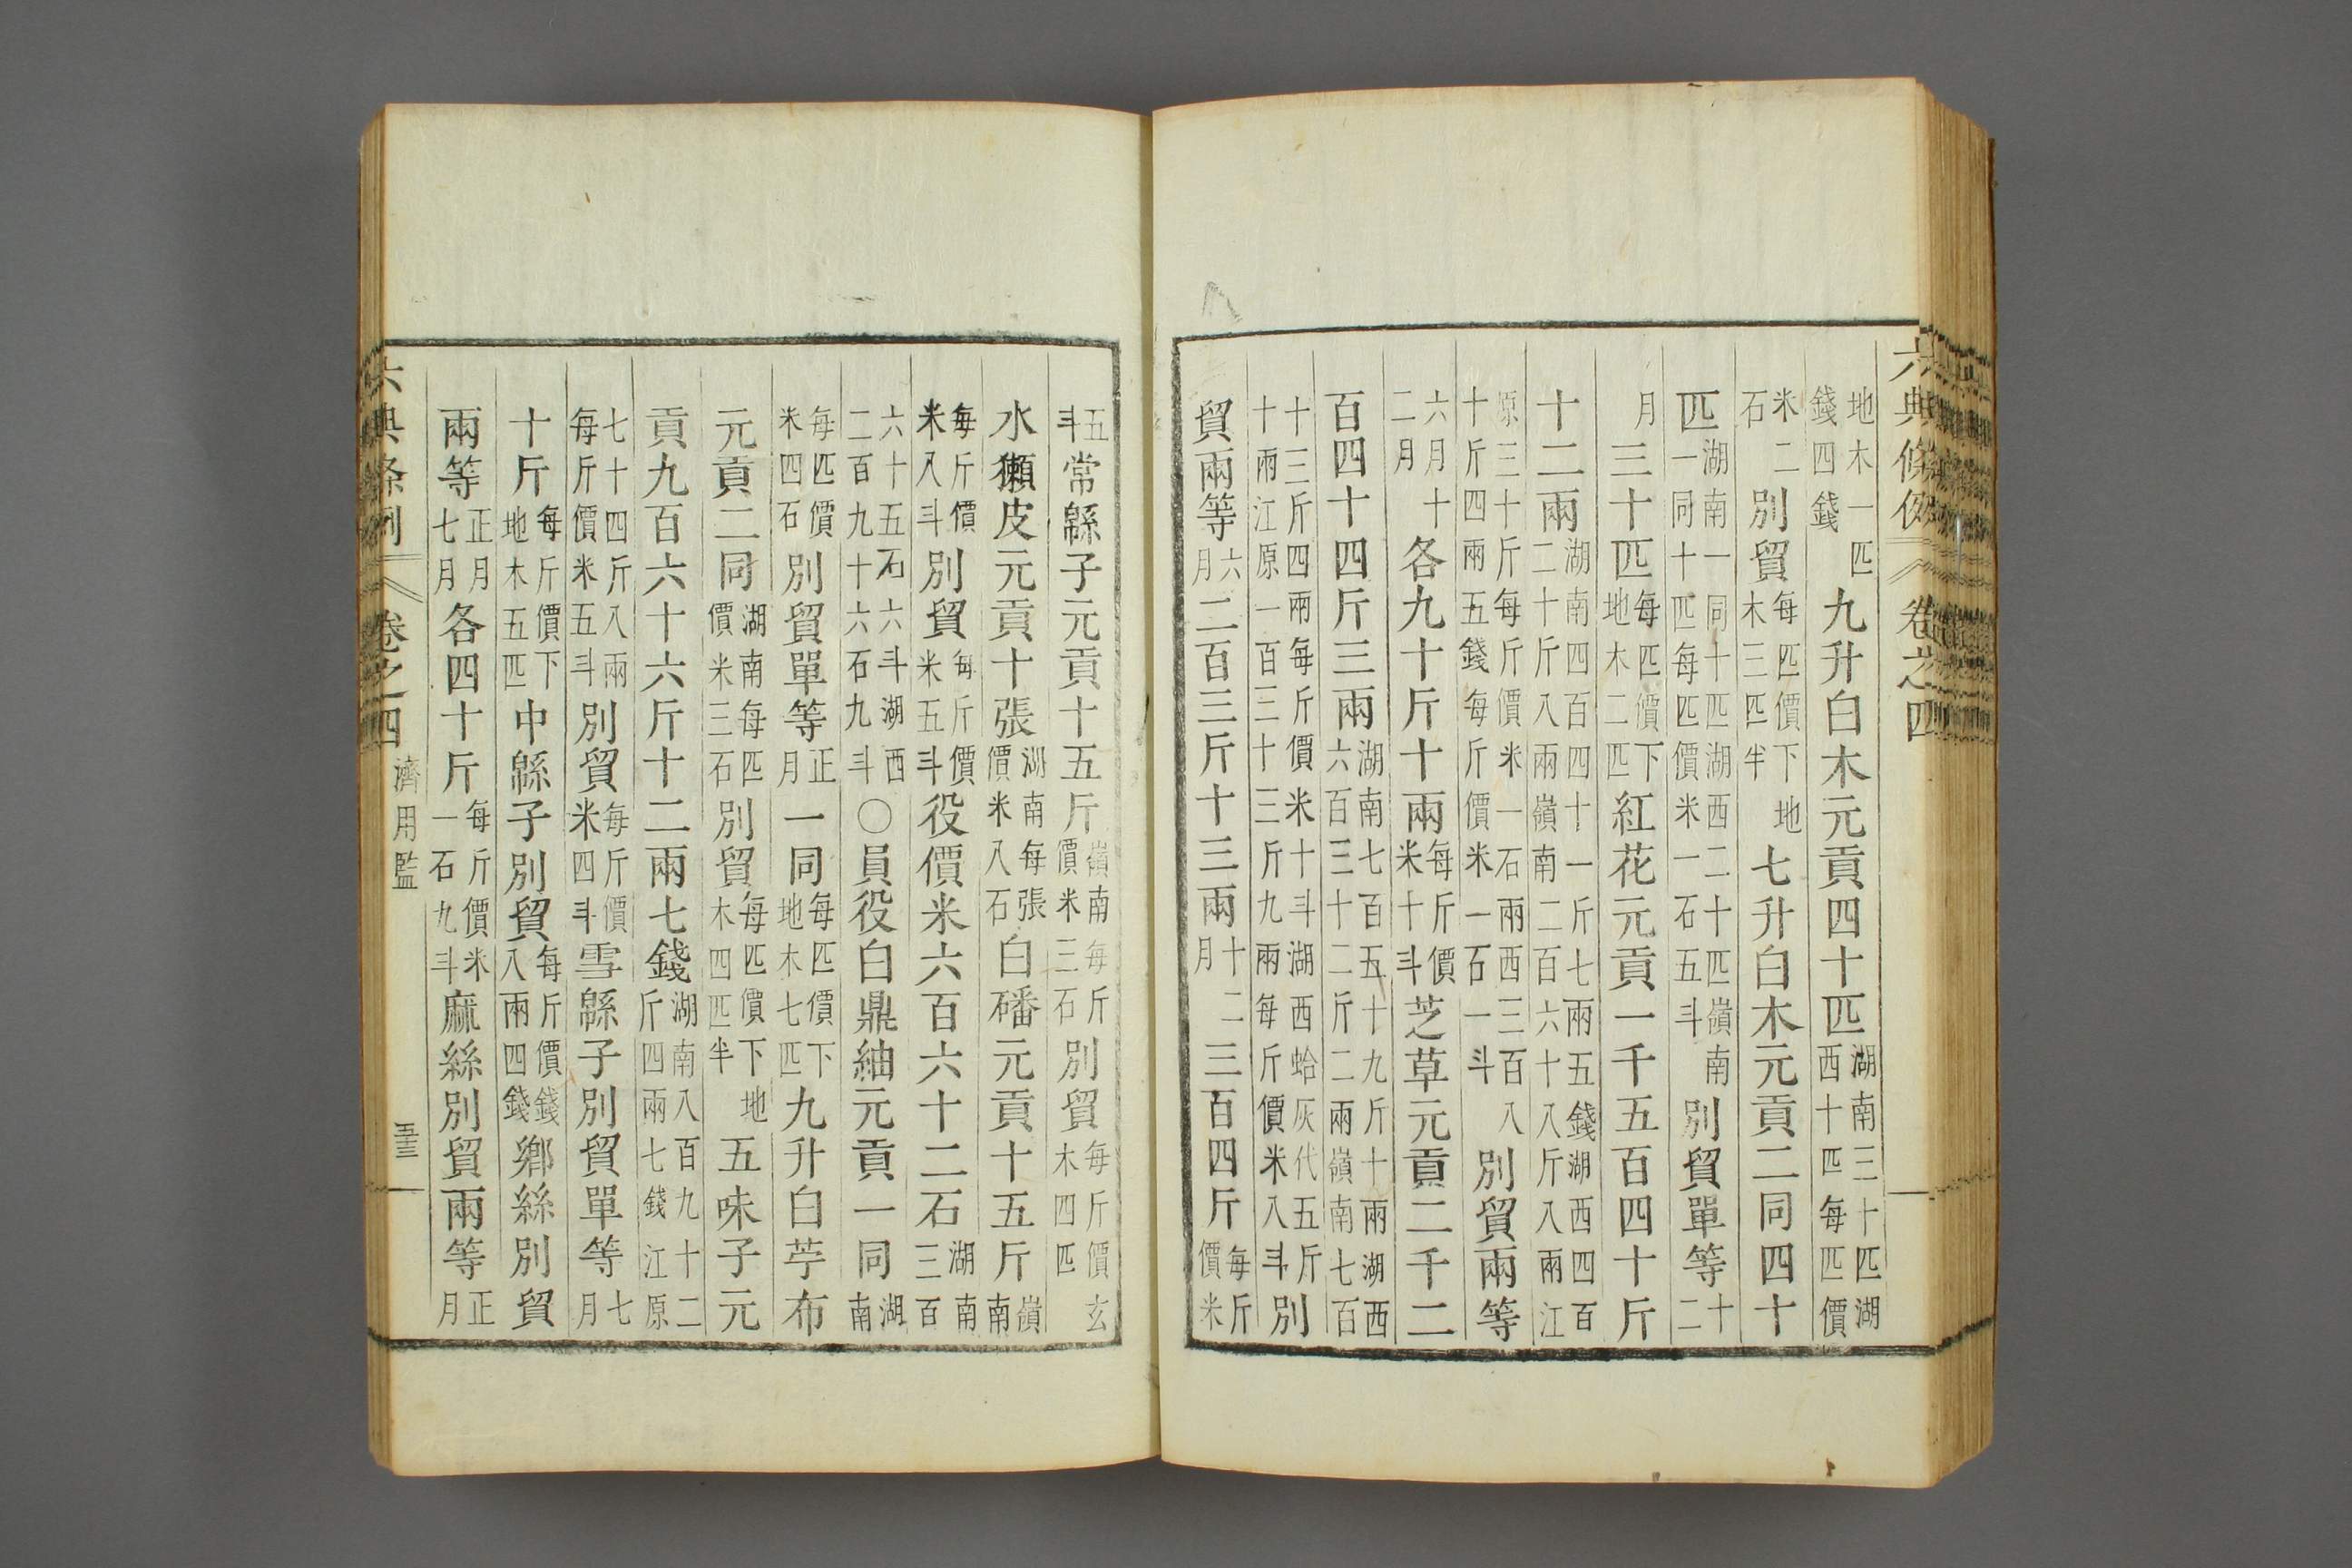 六典條例 卷之四
地木一匹錢四錢九升白木元貢四十匹湖南三十匹湖西十匹每匹價
米二石別貿每匹價下地木三匹半七升白木元貢二同四十
匹湖南一同十匹湖西二十匹嶺南一同十匹每匹價米一石五斗別貿單等十二
月三十匹每匹價下地木二匹紅花元貢一千五百四十斤
十二兩湖南四百四十一斤七兩五錢湖西四百二十斤八兩嶺南二百六十八斤八兩江
原三十斤每斤價米一石兩西三百八十斤四兩五錢每斤價米一石一斗別貿兩等
六月十二月各九十斤十兩每斤價米十斗芝草元貢二千二
百四十四斤三兩湖南七百五十九斤十兩湖西六百三十二斤二兩嶺南七百
十三斤四兩每斤價米十斗湖西蛤灰代五斤十兩江原一百三十三斤九兩每斤價米八斗別
貿兩等六月二百三斤十三兩十二月三百四斤每斤價米
五斗常緜子元貢十五斤嶺南每斤價米三石別貿每斤價玄木四匹
水獺皮元貢十張湖南每張價米八石白磻元貢十五斤嶺南
每斤價米八斗別貿每斤價米五斗役價米六百六十二石湖南三百
六十五石六斗湖西二百九十六石九斗○員役白鼎紬元貢一同湖南
每匹價米四石別貿單等正月一同每匹價下地木七匹九升白苧布
元貢二同湖南每匹價米三石別貿每匹價下地木四匹半五味子元
貢九百六十六斤十二兩七錢湖南八百九十二斤四兩七錢江原
七十四斤八兩每斤價米五斗別貿每斤價米四斗雪緜子別貿單等七月
十斤每斤價下地木五匹中緜子別貿每斤價錢八兩四錢鄕絲別貿
兩等正月七月各四十斤每斤價米一石九斗麻絲別貿兩等正月
六典條例 卷之四 濟用監 五三